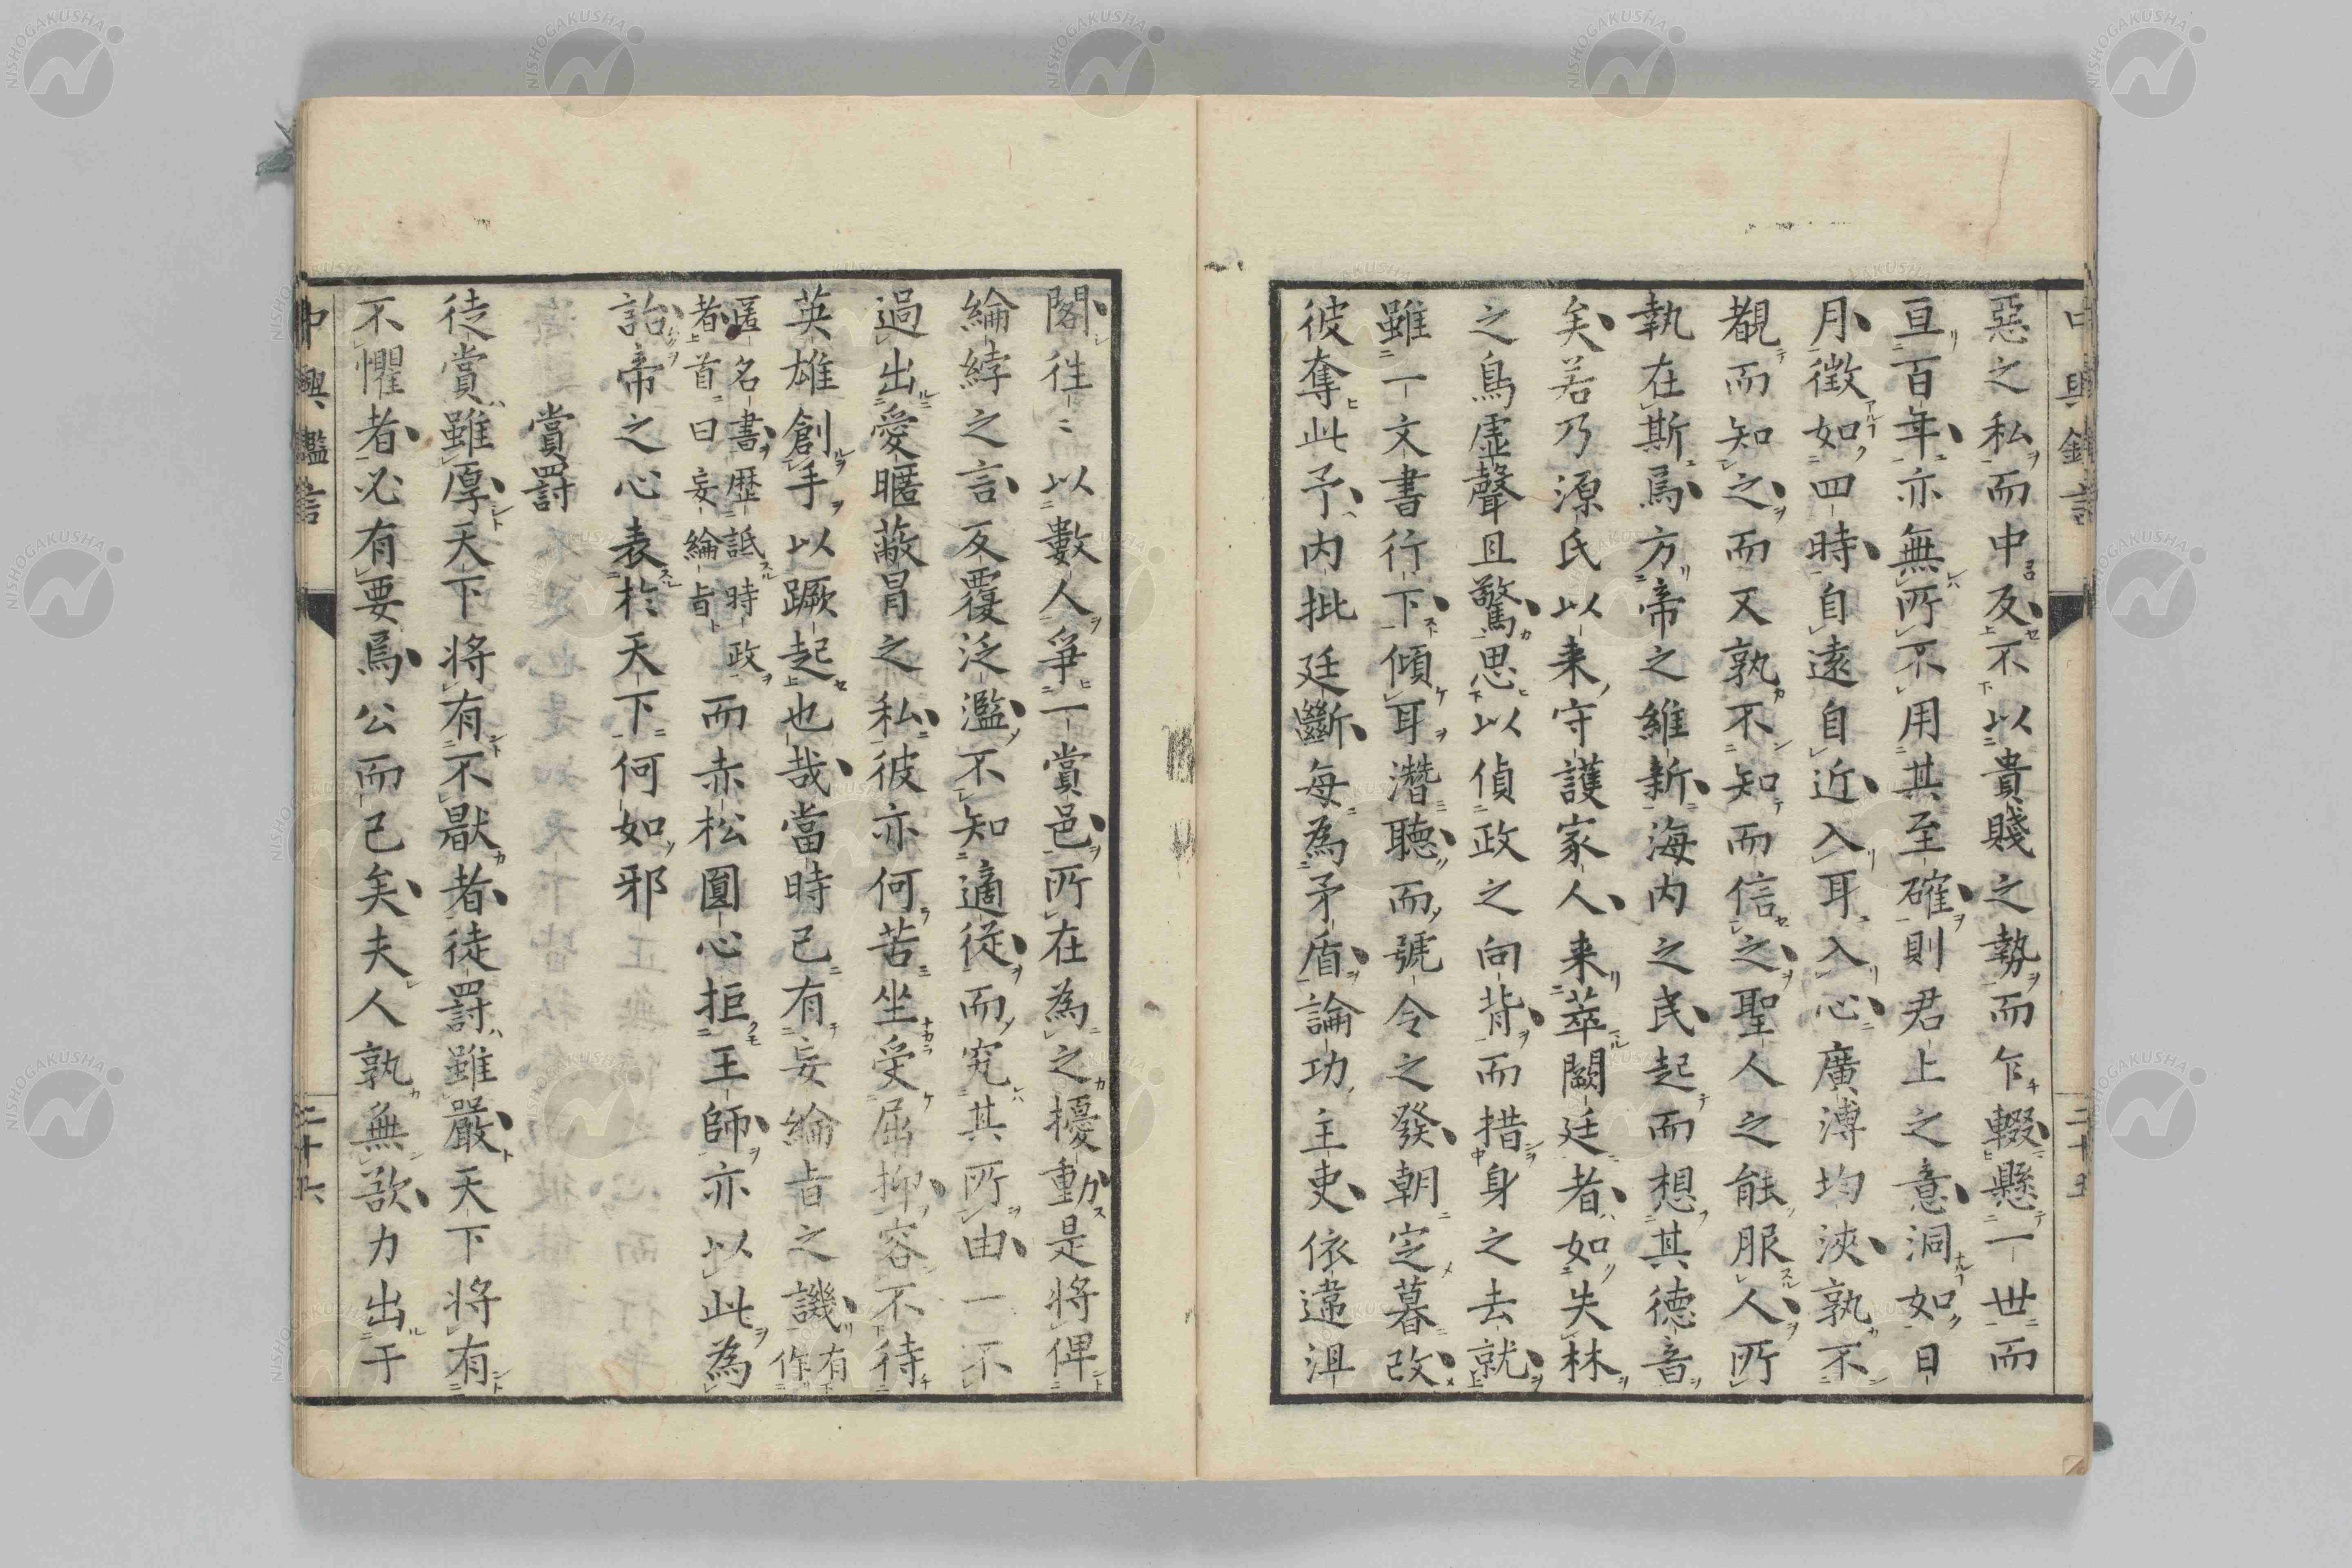 惡之私而中反不以貴賤之勢而乍輟懸一世而
亘百年亦無所不用其至確則君上之意洞如日
月徵如四時自遠自近入耳入心廣溥均浹孰不
覩而知之而又孰不知而信之聖人之能服人所
執在斯焉方帝之維新海内之民起而想其德音
矣若乃源氏以来守護家人来萃闕廷者如失林
之鳥虚聲且驚思以偵政之向背而措身之去就
雖一文書行下傾耳潛聴而號令之發朝定暮改
彼奪此予内批廷斷每為矛盾論功主吏依違沮
閣徃〻以數人爭一賞邑所在為之擾動是将俾
綸綍之言反覆泛濫不知適從而究其所由一不
過出愛暱蔽冒之私彼亦何苦坐受屈抑容不待
英雄創手以蹶起也哉當時已有妄綸旨之譏有作
匿名書歴詆時政者首曰妄綸旨而赤松圓心拒王師亦以此為
詒帝之心表於天下何如邪
賞罰
徒賞雖厚天下将有不厭者徒罰雖嚴天下将有
不懼者必有要焉公而已矣夫人孰無欲力出于
中興鑑言
二十五
中興鑑言
二十六